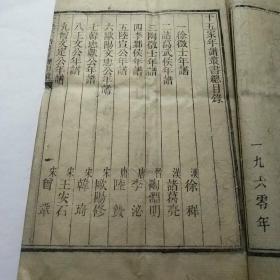 十五家年譜叢書總目錄
一 徐徵士年譜 漢 徐穉
二 諸葛武侯年譜 漢 諸葛亮
三 陶徵士年譜 晉 陶淵明
四 李鄴侯年譜 唐 李泌
五 陸宣公年譜 唐 陸贄
六 歐陽文忠公年譜 宋 歐陽修
七 韓忠獻公年譜 宋 韓琦
八 王文公年譜 宋 王安石
九 曾文定公年譜 宋 曾鞏
一九六零年